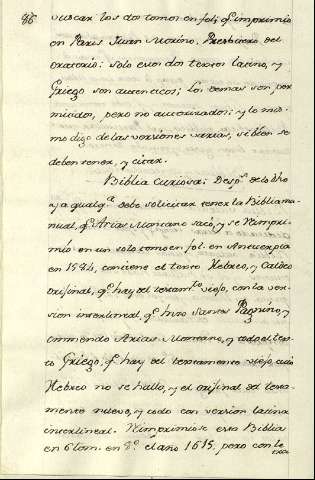 86
vuscar los dos tomos en fol; q.e imprimio
en Paris Juan Morino, Presbitero del
oratorio: solo esos dos textos latino, y
Griego son autenticos; los demas son per
mitidos, pero no autorizados; y lo mis-
mo digo de las versiones varias, si bien se
deben tener, y citar.
Biblia Curiosa: Desp.s de lo dho
ya qualq.a debe solicitar tener la Biblia ma-
nual, q.e Arias Montano sacó, y se Reimpri-
mió en un solo tomo en fol. en Antuerpia
en 1584, contiene el texto Hebreo, y Caldeo
orijinal, q.e hay del testam.to viejo, con la ver-
sion interlineal, q.e hizo Santes Pagnino, y
enmendo Arias Montano, y todo el tex-
to Griego, q.e hay del testamento viejo, cuio
Hebreo no se halla, y el orijinal del testa-
mento nuevo, y todo con version latina
interlineal. Reimprimiose esta Biblia
en 6 tom. en 8.o el año 1615, pero con le
tra